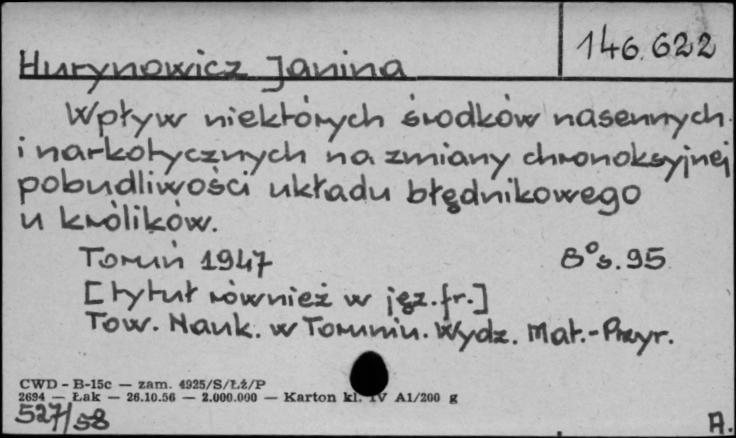 146.622
Hurynowicz Janina
Wpływ niektórych środków nasennych
i narkotycznych na zmiany chronoksyjnej
pobudliwości układu błędnikowego
u królików.
Toruń 1947 8° s. 95
[tytuł również w jęz. fr.]
Tow. Nauk. w Toruniu. Wydz. Mat.-Przyr.
CWD - B-15c — zam. 4925/S/Łż/P
2694 — Łak — 26.10.56 — 2.000.000 — Karton kl. IV A1/200 g
527/58
A.